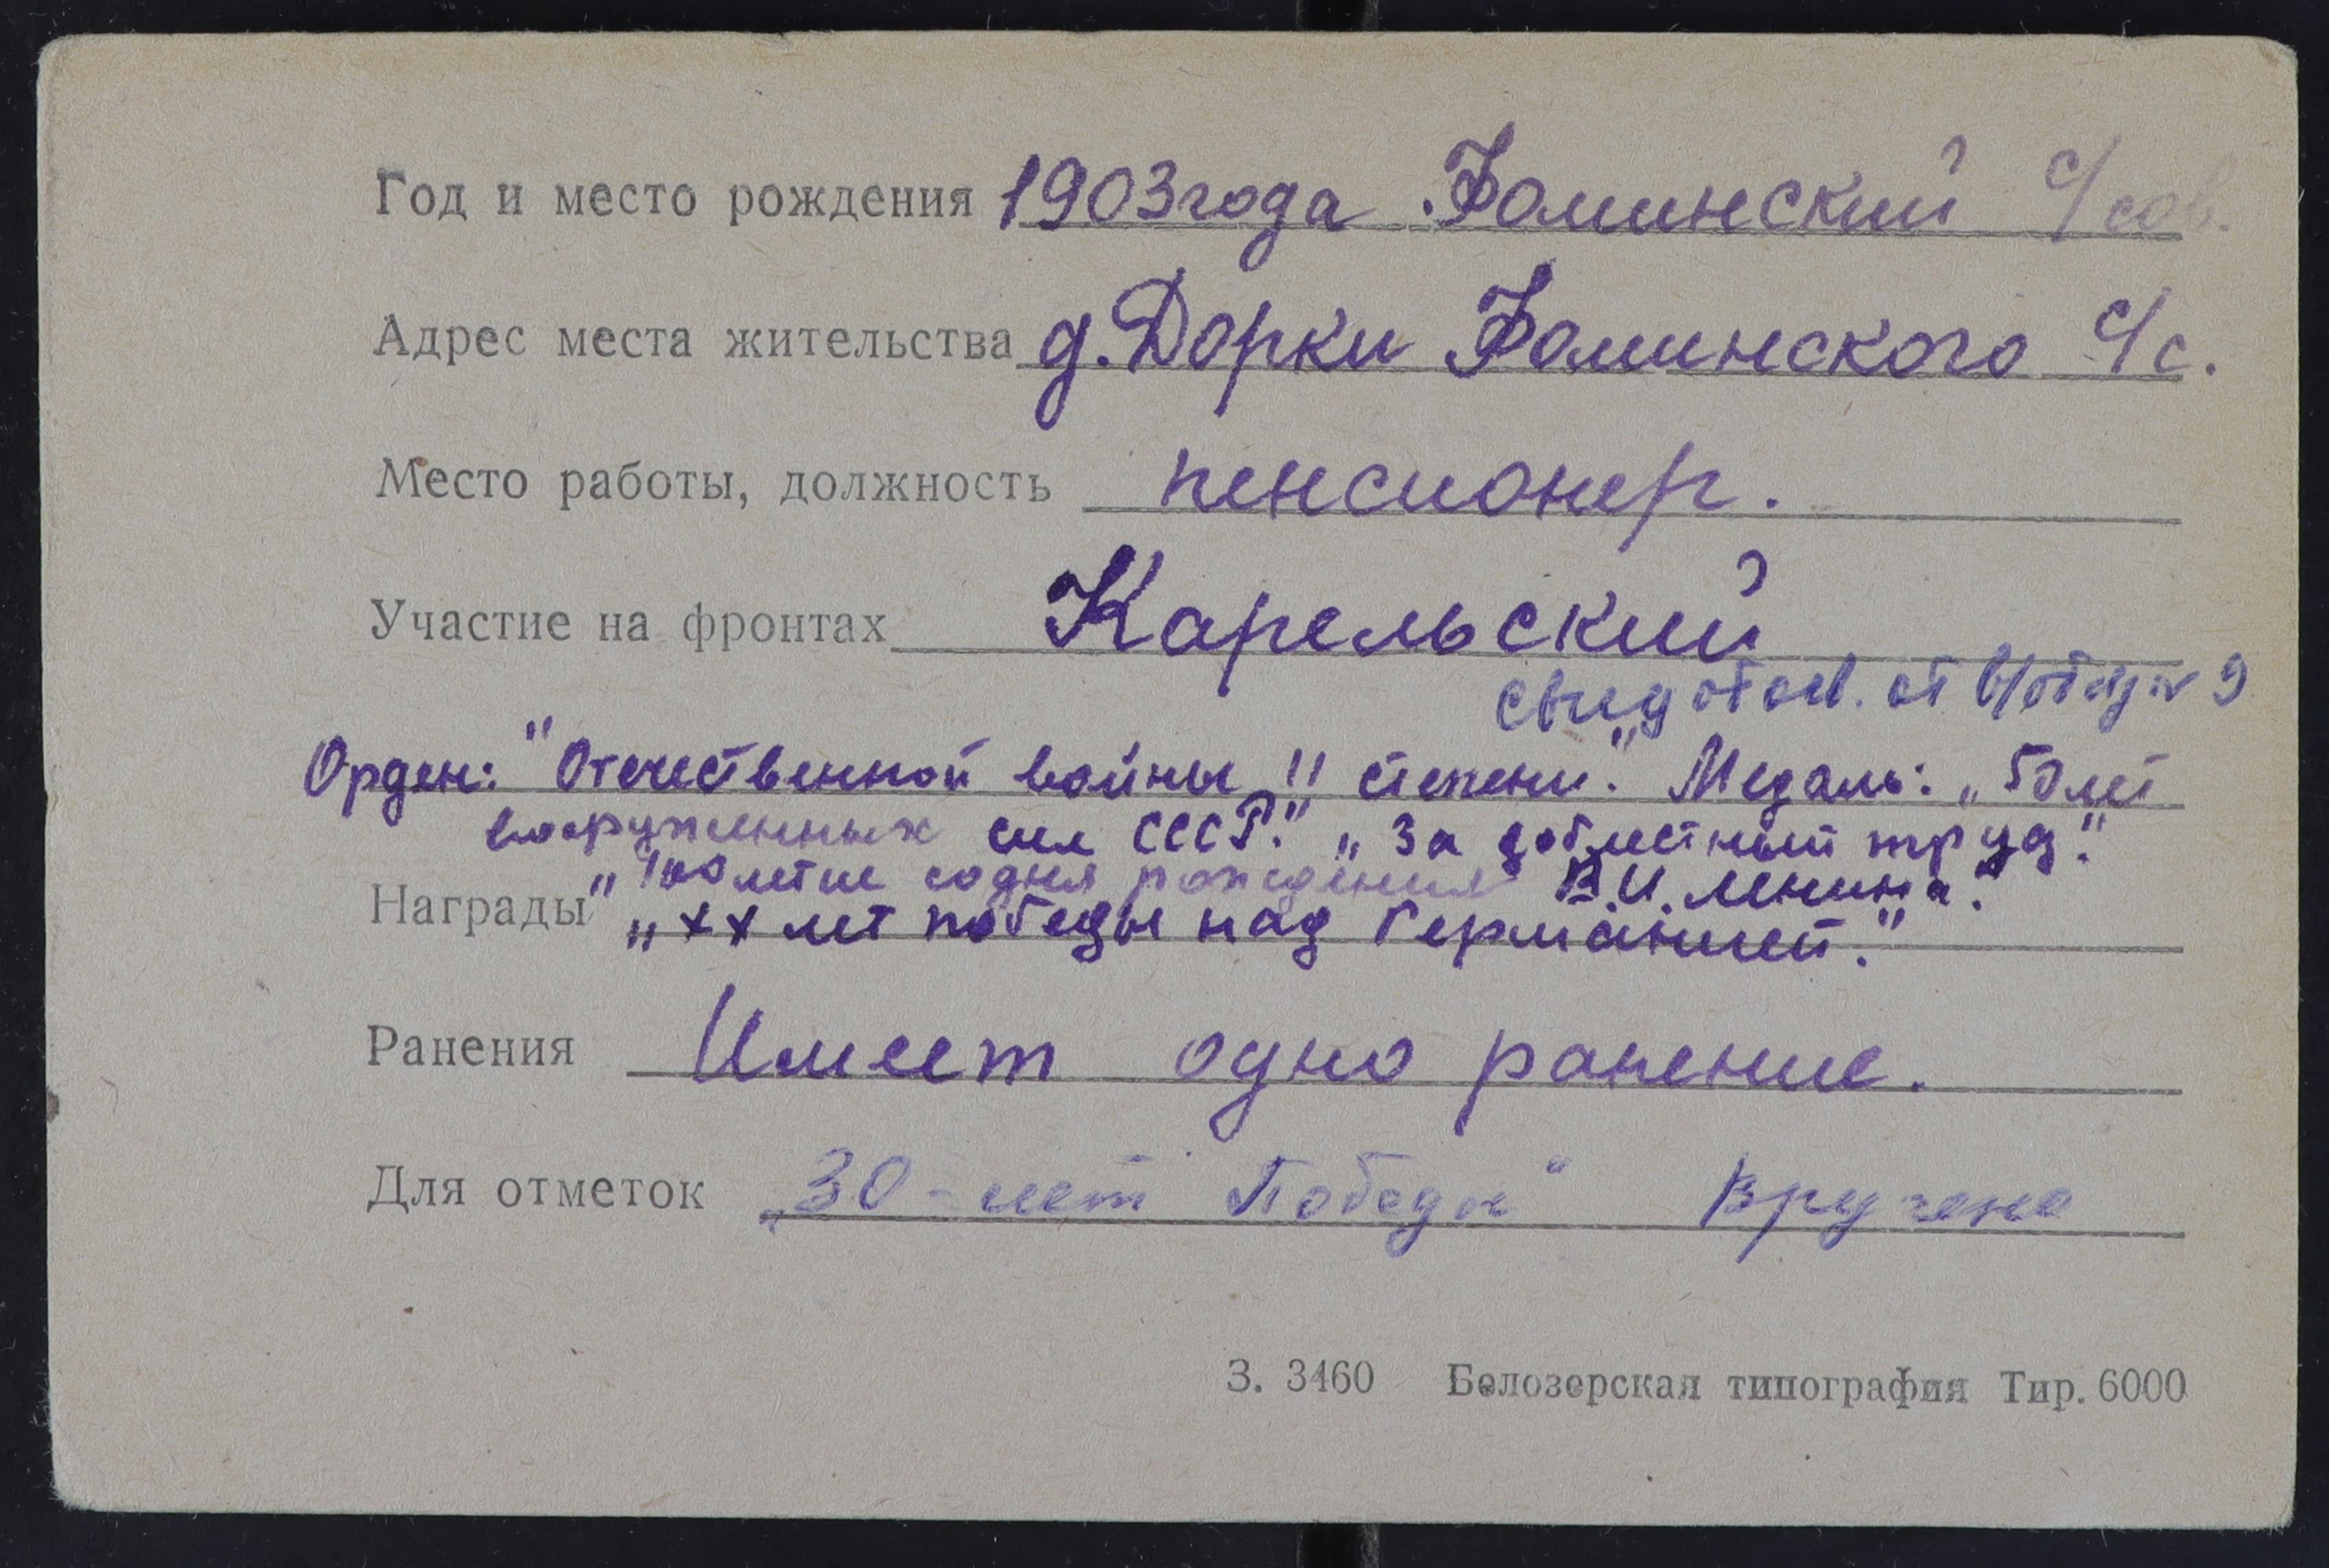 Год и место рождения 1903 года Фоминский с/сов.
Адрес места жительства д. Дорки Фоминского с/с.
Место работы, должность пенсионер.
Участие на фронтах Карельский
от
Орден: "Отечественной войны II степени." Медаль: „50 лет
вооруженных сил СССР." „За доблестный труд."
„100 летие со дня рождения В.И. Ленина."
Награды „XX лет победы над Германией."
Ранения Имеет одно ранение.
Для отметок „30-лет Победы" Вручена
З. 3460 Белозерская типография Тир. 6000